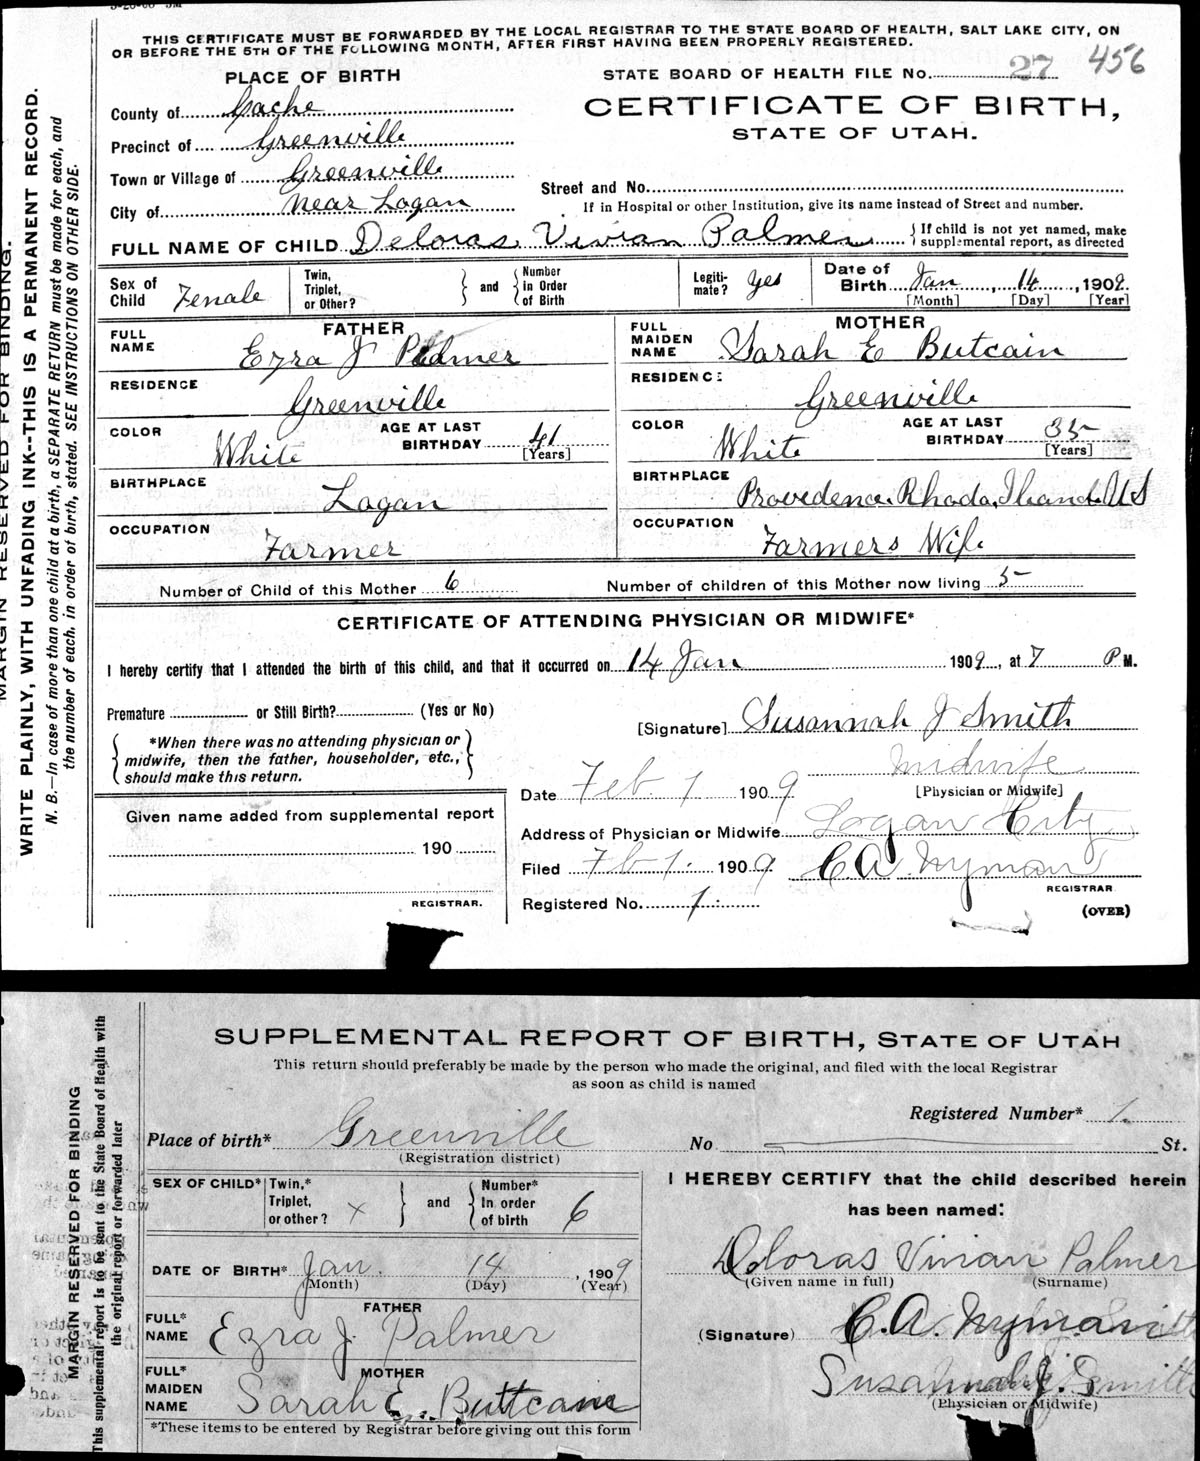 THIS CERTIFICATE MUST BE FORWARDED BY THE LOCAL REGISTRAR TO THE STATE BOARD OF HEALTH, SALT LAKE CITY, ON
OR BEFORE THE 5TH OF THE FOLLOWING MONTH, AFTER FIRST HAVING BEEN PROPERLY REGISTERED.
PLACE OF BIRTH
STATE BOARD OF HEALTH FILE No. 27 456
County of Cache
CERTIFICATE OF BIRTH,
STATE OF UTAH.
Precinct of Greenville
Town or Village of Greenville
Street and No.
City of near Logan
If in Hospital or other Institution, give its name instead of Street and number.
FULL NAME OF CHILD Deloras Vivian Palmer { If child is not yet named, make
supplemental report, as directed
Sex of Child Female
Twin, Triplet, or Other? } and { Number in Order of Birth
Legiti-mate? yes
Date of Birth Jan 14, 1909.
[Month] [Day] [Year]
FATHER
FULL NAME Ezra J Palmer
RESIDENCE
Greenville
COLOR White AGE AT LAST BIRTHDAY 41 [Years]
BIRTHPLACE
Logan
OCCUPATION
Farmer
MOTHER
FULL MAIDEN NAME Sarah E Butcain
RESIDENCE
Greenville
COLOR White AGE AT LAST BIRTHDAY 35 [Years]
BIRTHPLACE
Providence, Rhoda, Iland. U S
OCCUPATION
Farmers Wife
Number of Child of this Mother 6 Number of children of this Mother now living 5
CERTIFICATE OF ATTENDING PHYSICIAN OR MIDWIFE*
I hereby certify that I attended the birth of this child, and that it occurred on 14 Jan 1909, at 7 P M.
Premature or Still Birth? (Yes or No)
[Signature] Susannah J Smith
*When there was no attending physician or
midwife, then the father, householder, etc.,
should make this return.
Midwife
[Physician or Midwife]
Date Feb 1 1909
Given name added from supplemental report
190
REGISTRAR.
Address of Physician or Midwife Logan City
Filed Feb 1. 1909. C.A. Nyman
REGISTRAR
Registered No. 1.
(OVER)
MARGIN RESERVED FOR BINDING.
WRITE PLAINLY, WITH UNFADING INK--THIS IS A PERMANENT RECORD.
N. B.—In case of more than one child at a birth, a SEPARATE RETURN must be made for each, and
the number of each, in order of birth, stated. SEE INSTRUCTIONS ON OTHER SIDE.
SUPPLEMENTAL REPORT OF BIRTH, STATE OF UTAH
This return should preferably be made by the person who made the original, and filed with the local Registrar
as soon as child is named
Registered Number* 1.
Place of birth* Greenville No St.
(Registration district)
SEX OF CHILD*
Twin,* Triplet, or other? x } and { Number* In order of birth 6
DATE OF BIRTH* Jan. 14, 1909
(Month) (Day) (Year)
FATHER
FULL* NAME Ezra J. Palmer
MOTHER
FULL* MAIDEN NAME Sarah E. Buttcane
*These items to be entered by Registrar before giving out this form
I HEREBY CERTIFY that the child described herein
has been named:
Deloras Vivian Palmer
(Given name in full) (Surname)
(Signature) C.A. Nyman
Susannah J. Smith
(Physician or Midwife)
MARGIN RESERVED FOR BINDING
This supplemental report is to be sent to the State Board of Health with
the original report or forwarded later